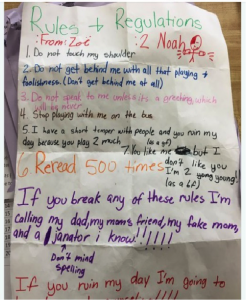 Rules + Regulations
:From: Zoë :2 Noah
1. Do not touch my shoulder
2. Do not get behind me with all that playing +
foolishness. (Don't get behind me at all)
3. Do not speak to me unless its a greeting, which
will be never
4 Stop playing with me on the bus
5. I have a short temper with people and you ruin my
day because you play 2 much (as a gf)
7. Ion like me but I
don't like you
I'm 2 young young!
(as a bf)
6 Reread 500 times
If you break any of these rules I'm
calling my dad, my moms friend, my fake mom,
and a janator i know!!!!!!
Don't mind
spelling
If you ruin my day I'm going to